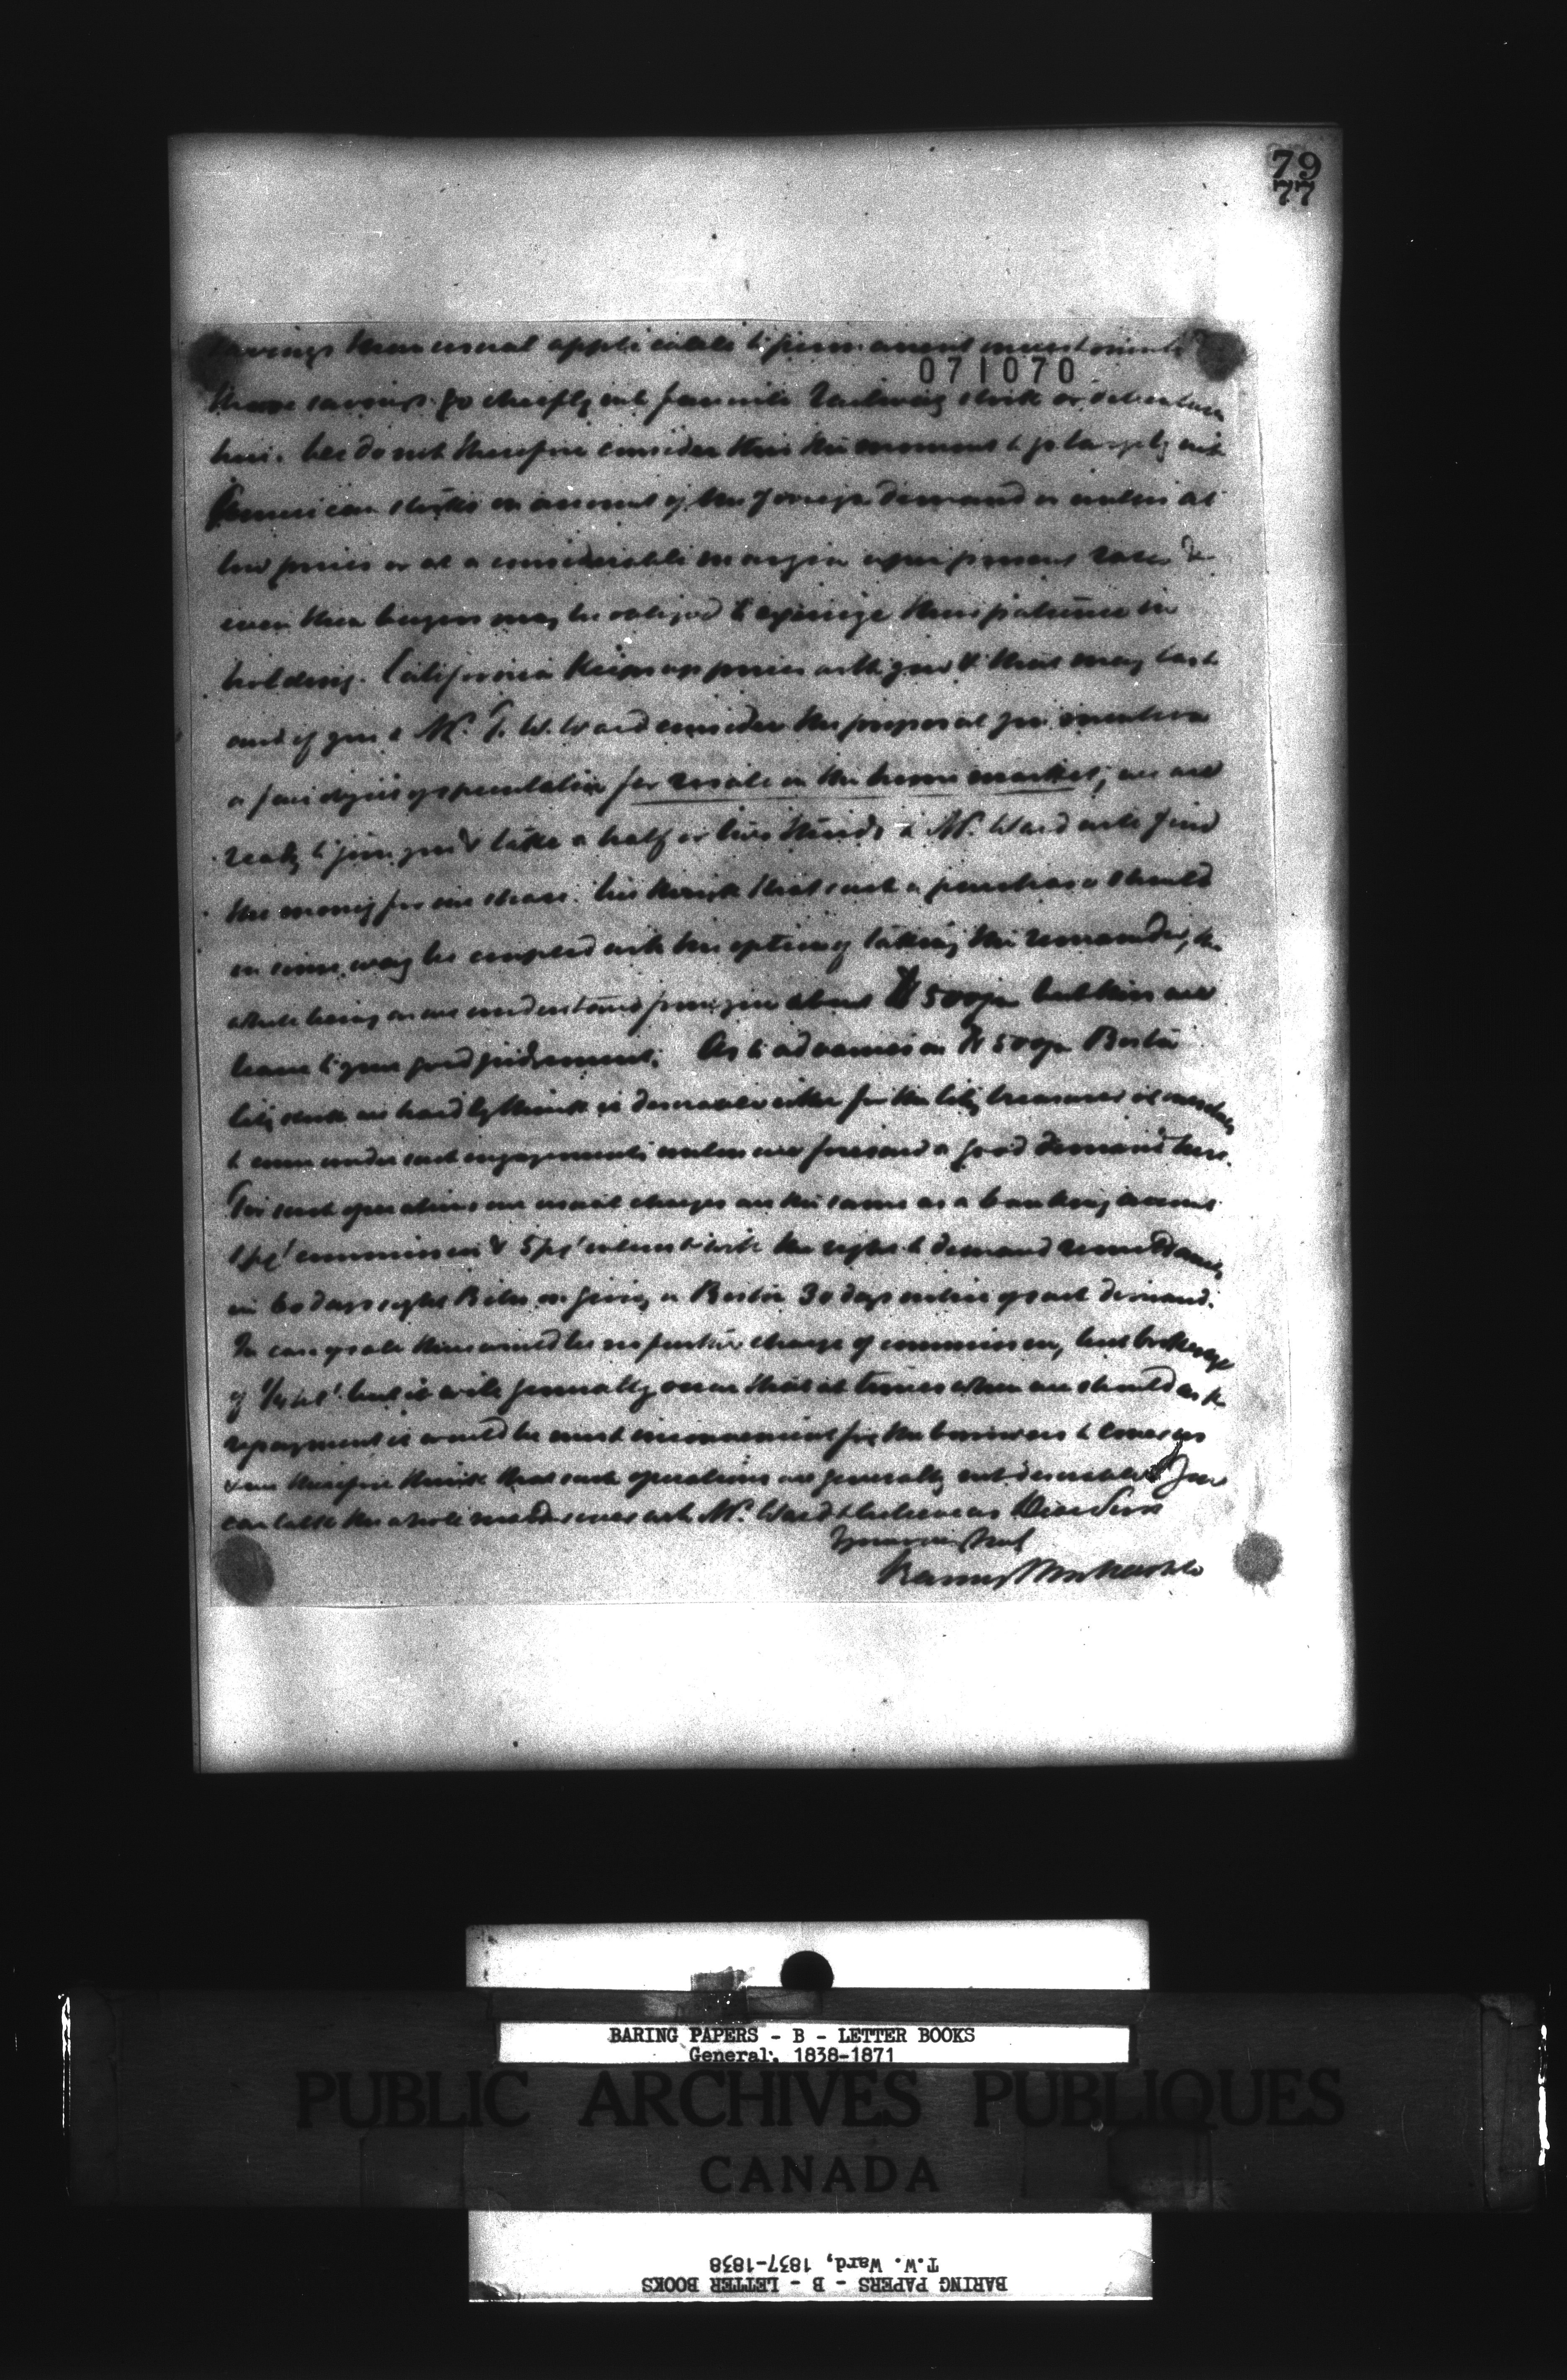 79
77
savings than usual applicable to permanent investments
071070
these savings go chiefly into favourite Railway stock or debentures
here. We do not therefore consider this the moment to go largely into
American stocks on account of the foreign demand or unless at
low prices or at a considerable margin upon present rates &
even then buyers may be obliged to exercise their patience in
holding. California keeps up prices with you & that may last
and if you & Mr. T. W. Ward consider the proposal you mention
a fair object of speculation for resale in the home market, we are
ready to join you & take a half or two thirds & Mr. Ward will find
the money for our share. We think that such a purchase should
in some way be coupled with the option of taking the remainder, the
whole being as we understand from you about $500/m but this we
leave to your good judgement. As to advances on $500/m Boston
City stock we hardly think it desirable either for the City treasurer or ourselves
to come under such engagements unless we foresaw a good demand here.
For such operations our usual charges are the same as a banking account
1 pct commission & 5 pct interest with the right to demand remittances
in 60 days sight Bills on giving in Boston 30 days notice of such demand.
In case of sale there would be no further charge of commission, but brokerage
of 1/4 pct. but it will generally occur that at times when we should ask
repayment it would be most inconvenient for the borrowers to
& we therefore think that such operations are generally not desirable. You
can talk the whole matter over with Mr. Ward & believe us Dear Sirs
Yours very truly
Baring Brothers & Co
BARING PAPERS - B - LETTER BOOKS
General, 1838-1871
PUBLIC ARCHIVES PUBLIQUES
CANADA
T.W. Ward, 1837-1838
BARING PAPERS - B - LETTER BOOKS